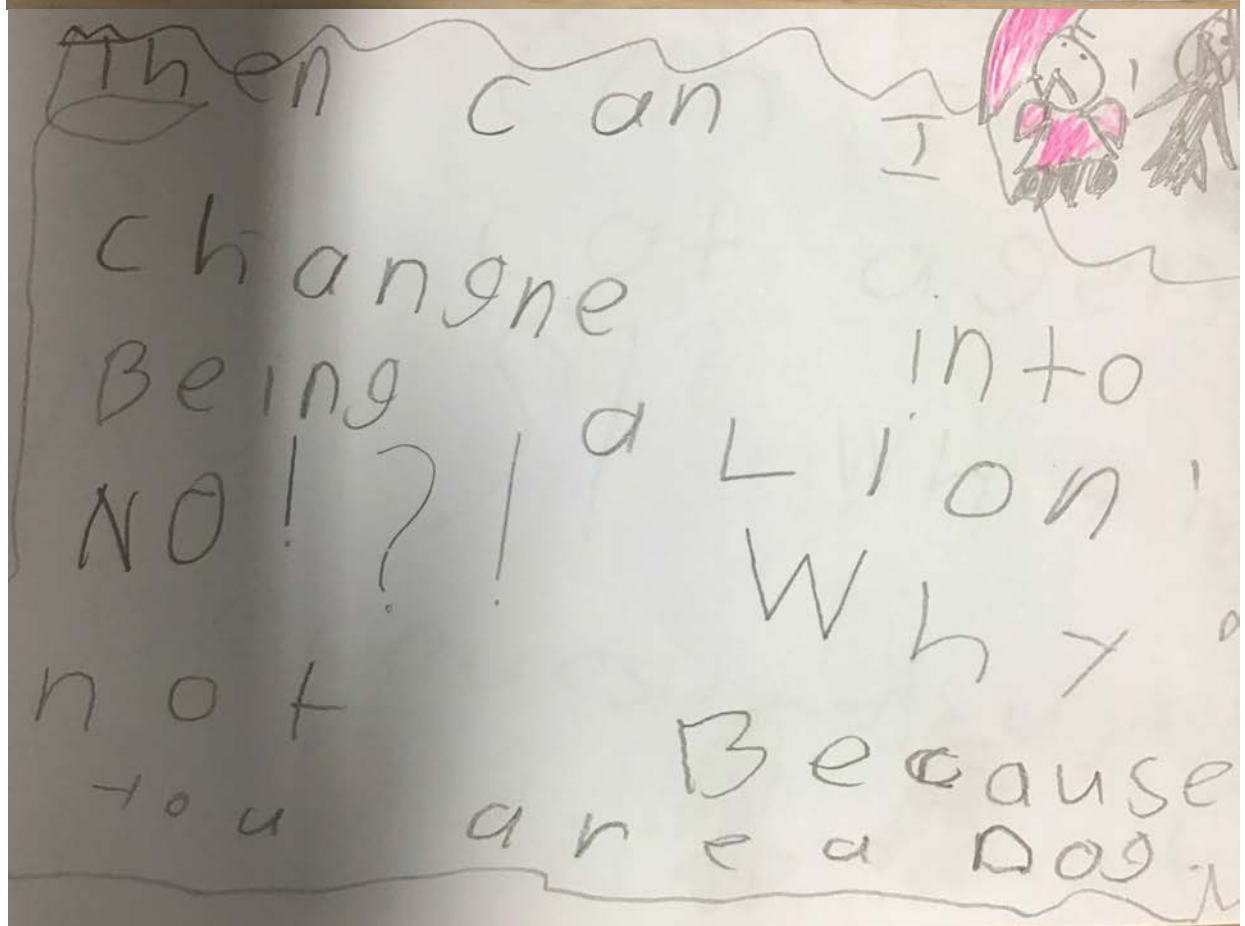 Then can I
Changne into
Being a Lion!
NO!?! Why
not Because
You are a Dog.